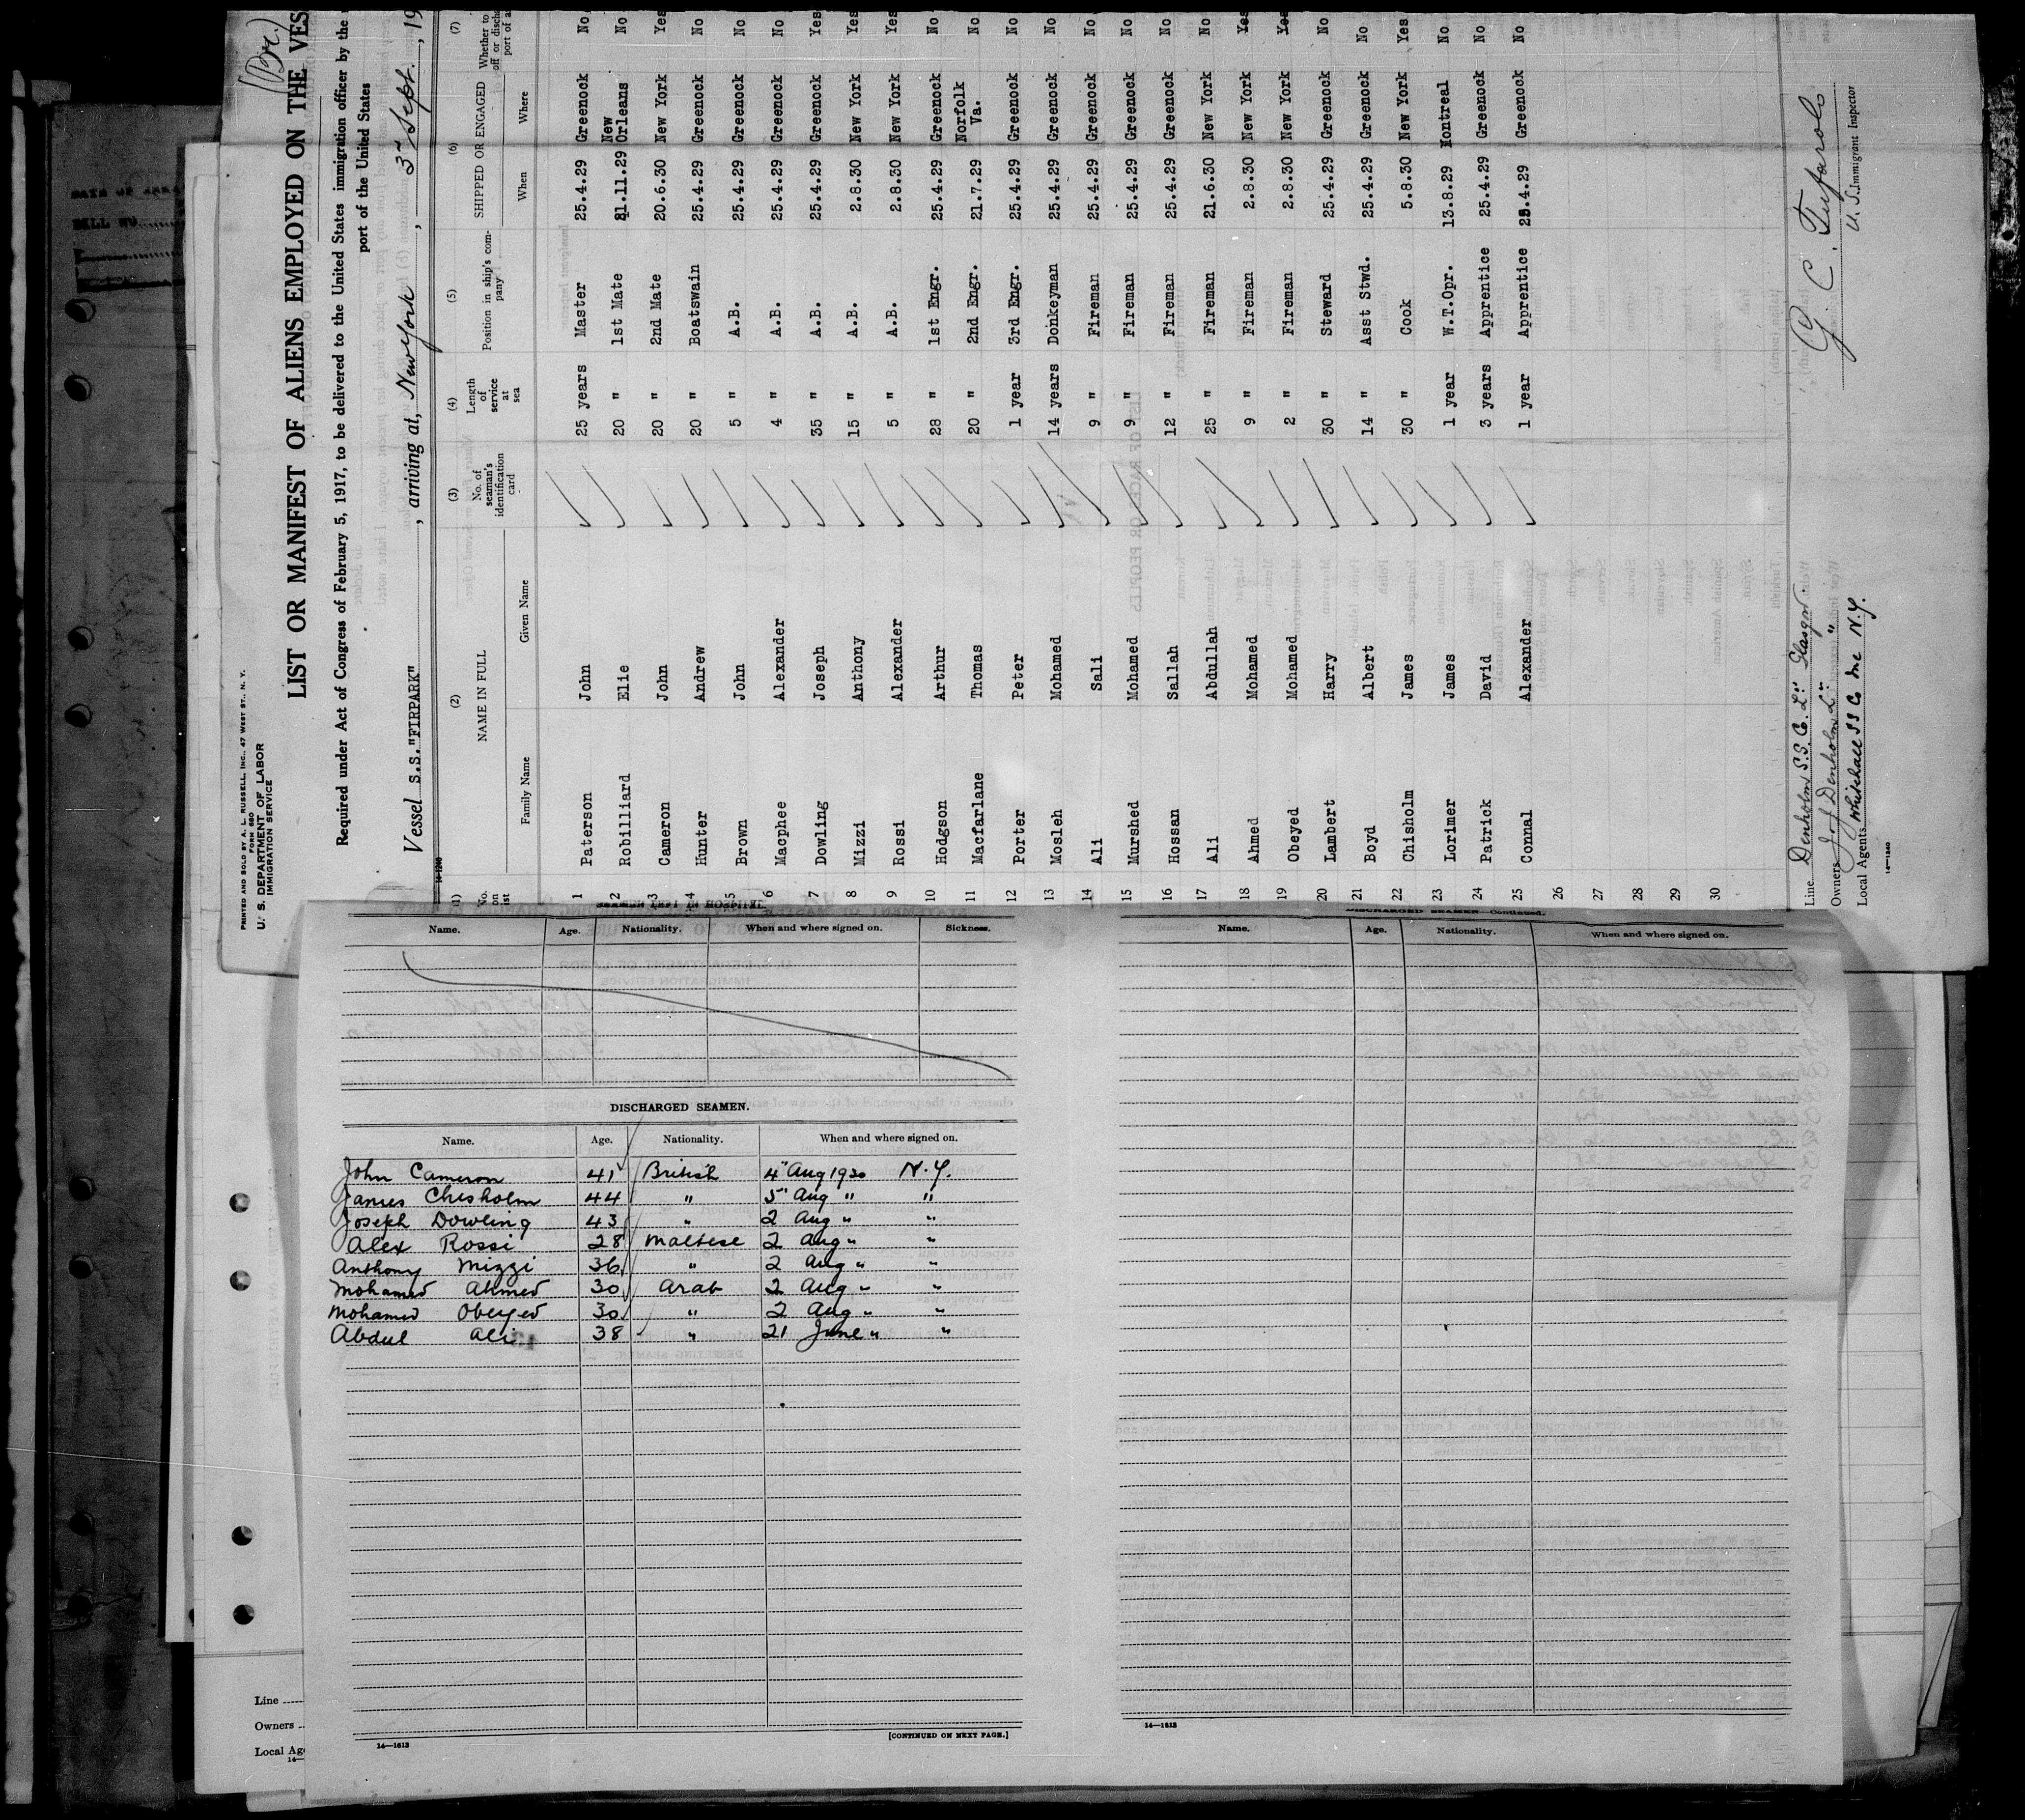 PRINTED AND SOLD BY A. L. RUSSELL, INC., 47 WEST ST., N. Y.
FORM 680
U. S. DEPARTMENT OF LABOR
IMMIGRATION SERVICE
(Br.)
LIST OR MANIFEST OF ALIENS EMPLOYED ON THE VES
Required under Act of Congress of February 5, 1917, to be delivered to the United States immigration officer by the
port of the United States
Vessel S.S."FIRPARK", arriving at, New York, 3rd Sept., 19
14-1240
(1) No. on list (2) NAME IN FULL Family Name Given Name (3) No. of seaman's identification card (4) Length of service at sea (5) Position in ship's company (6) SHIPPED OR ENGAGED When Where (7) Whether to off or discha port of a
1 Paterson John 25 years Master 25.4.29 Greenock No
2 Robilliard Elie 20 " 1st Mate 21.11.29 New Orleans No
3 Cameron John 20 " 2nd Mate 20.6.30 New York Yes
4 Hunter Andrew 20 " Boatswain 25.4.29 Greenock No
5 Brown John 5 " A.B. 25.4.29 Greenock No
6 Macphee Alexander 4 " A.B. 25.4.29 Greenock No
7 Dowling Joseph 35 " A.B. 25.4.29 Greenock Yes
8 Mizzi Anthony 15 " A.B. 2.8.30 New York Yes
9 Rossi Alexander 5 " A.B. 2.8.30 New York Yes
10 Hodgson Arthur 28 " 1st Engr. 25.4.29 Greenock No
11 Macfarlane Thomas 20 " 2nd Engr. 21.7.29 Norfolk Va. No
12 Porter Peter 1 year 3rd Engr. 25.4.29 Greenock No
13 Mosleh Mohamed 14 years Donkeyman 25.4.29 Greenock No
14 Ali Sali 9 " Fireman 25.4.29 Greenock No
15 Murshed Mohamed 9 " Fireman 25.4.29 Greenock No
16 Hossan Sallah 12 " Fireman 25.4.29 Greenock No
17 Ali Abdullah 25 " Fireman 21.6.30 New York No
18 Ahmed Mohamed 9 " Fireman 2.8.30 New York Yes
19 Obeyed Mohamed 2 " Fireman 2.8.30 New York Yes
20 Lambert Harry 30 " Steward 25.4.29 Greenock No
21 Boyd Albert 14 " Asst Stwd. 25.4.29 Greenock No
22 Chisholm James 30 " Cook 5.8.30 New York Yes
23 Lorimer James 1 year W.T.Opr. 13.8.29 Montreal No
24 Patrick David 3 years Apprentice 25.4.29 Greenock No
25 Connal Alexander 1 year Apprentice 25.4.29 Greenock No
26
27
28
29
30
Line Denholm S.S. Co. Ltd. Glasgow.
Owners J & J Denholm Ltd. "
Local Agents Whitehall SS Co Inc N.Y.
14-1240
G. C. Tufarolo
U. S. Immigrant Inspector
Name. Age. Nationality. When and where signed on. Sickness.
DISCHARGED SEAMEN.
Name. Age. Nationality. When and where signed on.
John Cameron 41 British 4" Aug 1930 N.Y.
James Chisholm 44 " 5" Aug " "
Joseph Dowling 43 " 2 Aug " "
Alex Rossi 28 Maltese 2 Aug " "
Anthony Mizzi 36 " 2 Aug " "
Mohamed Ahmed 30 Arab 2 Aug " "
Mohamed Obeyed 30 " 2 Aug " "
Abdul Ali 38 " 21 June " "
14—1613
[CONTINUED ON NEXT PAGE.]
DISCHARGED SEAMEN—Continued.
Name. Age. Nationality. When and where signed on.
14—1613
Line
Owners
Local Ag
14—